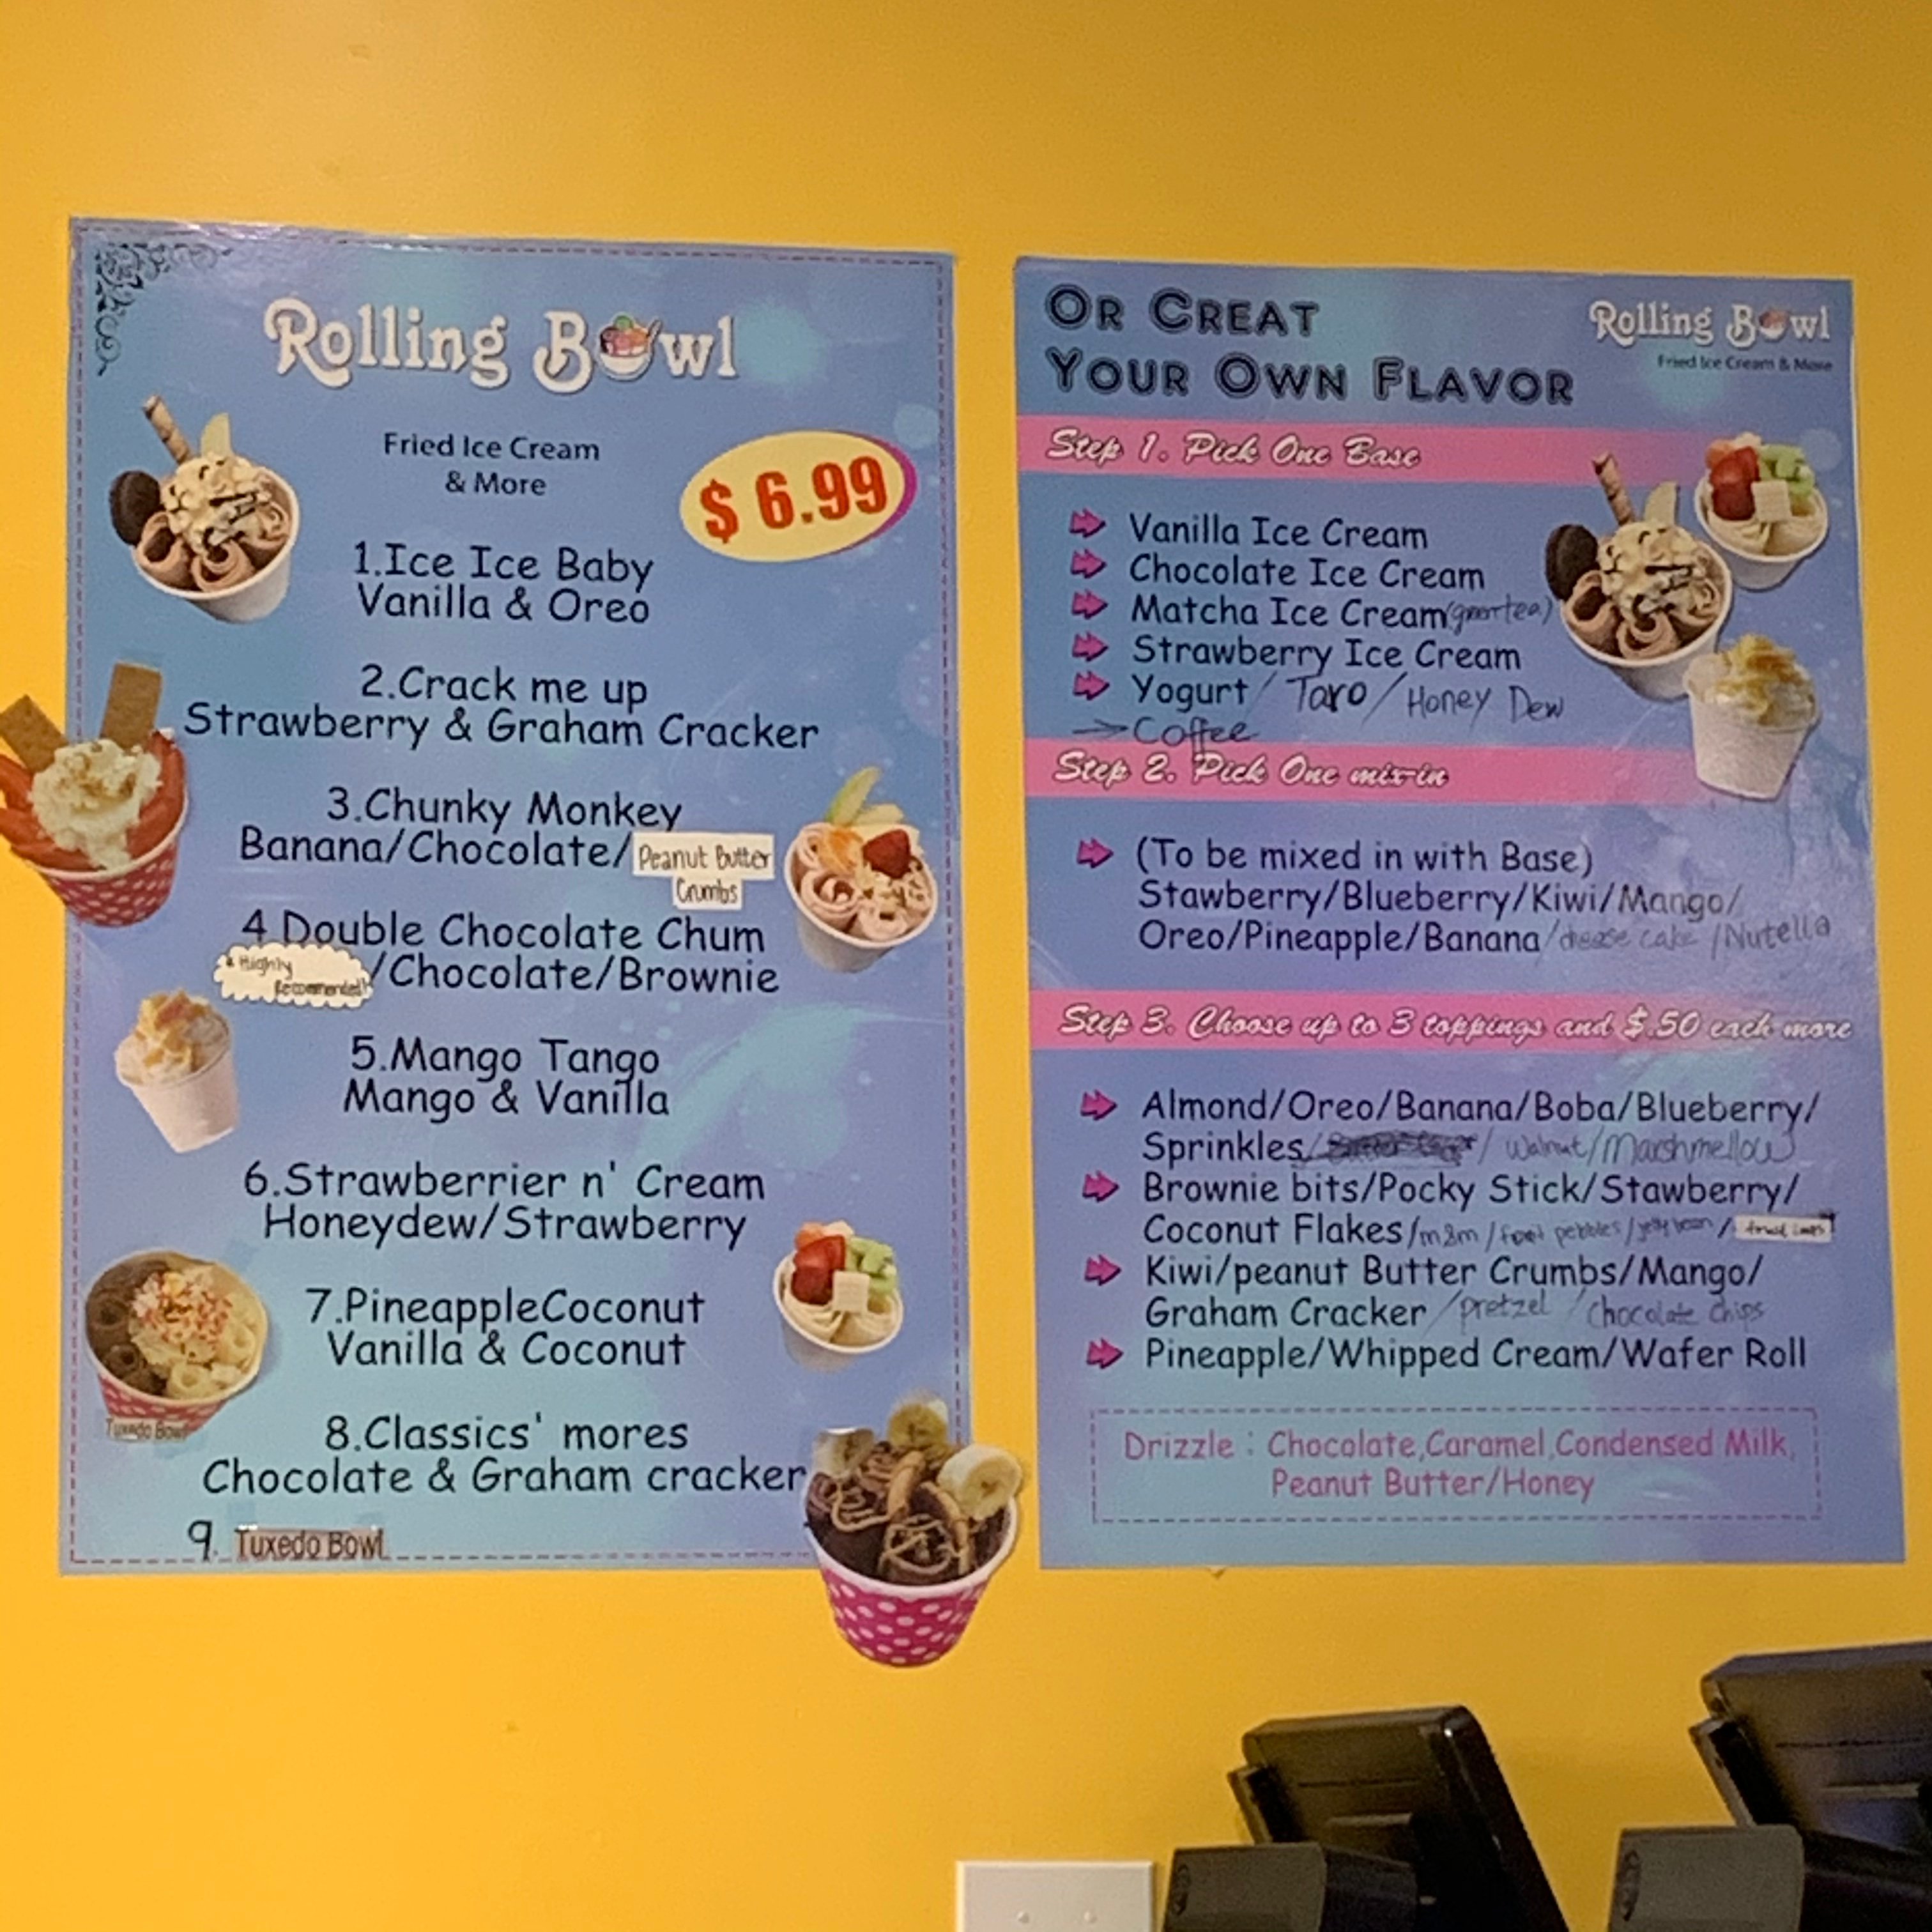 Rolling Bowl
Fried Ice Cream
& More
$ 6.99
1.Ice Ice Baby
Vanilla & Oreo
2.Crack me up
Strawberry & Graham Cracker
3.Chunky Monkey
Banana/Chocolate/Peanut Butter
Crumbs
4 Double Chocolate Chum
* Highly
Recommended!
/Chocolate/Brownie
5.Mango Tango
Mango & Vanilla
6.Strawberrier n' Cream
Honeydew/Strawberry
7.PineappleCoconut
Vanilla & Coconut
Tuxedo Bowl
8.Classics' mores
Chocolate & Graham cracker
9. Tuxedo Bowl
OR CREAT
YOUR OWN FLAVOR
Rolling Bowl
Fried Ice Cream & More
Step 1. Pick One Base
Vanilla Ice Cream
Chocolate Ice Cream
Matcha Ice Cream(green tea)
Strawberry Ice Cream
Yogurt/ Taro / Honey Dew
→ Coffee
Step 2. Pick One mix-in
(To be mixed in with Base)
Stawberry/Blueberry/Kiwi/Mango/
Oreo/Pineapple/Banana/cheese cake /Nutella
Step 3. Choose up to 3 toppings and $.50 each more
Almond/Oreo/Banana/Boba/Blueberry/
Sprinkles/ / Walnut/Marshmellow
Brownie bits/Pocky Stick/Stawberry/
Coconut Flakes/m&m / pebbles/jelly bean /
Kiwi/peanut Butter Crumbs/Mango/
Graham Cracker /pretzel / Chocolate chips
Pineapple/Whipped Cream/Wafer Roll
Drizzle : Chocolate,Caramel,Condensed Milk,
Peanut Butter/Honey